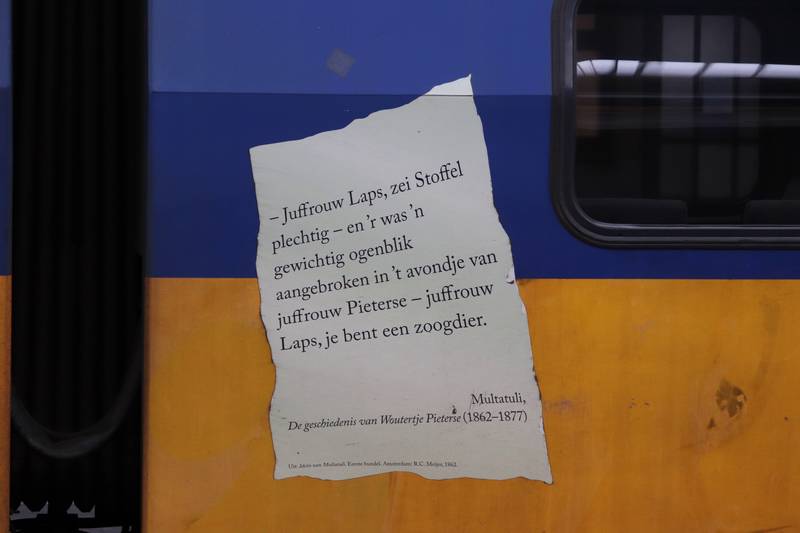 – Juffrouw Laps, zei Stoffel
plechtig – en ’r was ’n
gewichtig ogenblik
aangebroken in ’t avondje van
juffrouw Pieterse – juffrouw
Laps, je bent een zoogdier.
Multatuli,
De geschiedenis van Woutertje Pieterse (1862–1877)
Uit: Ideën van Multatuli. Eerste bundel. Amsterdam: R.C. Meijer, 1862.